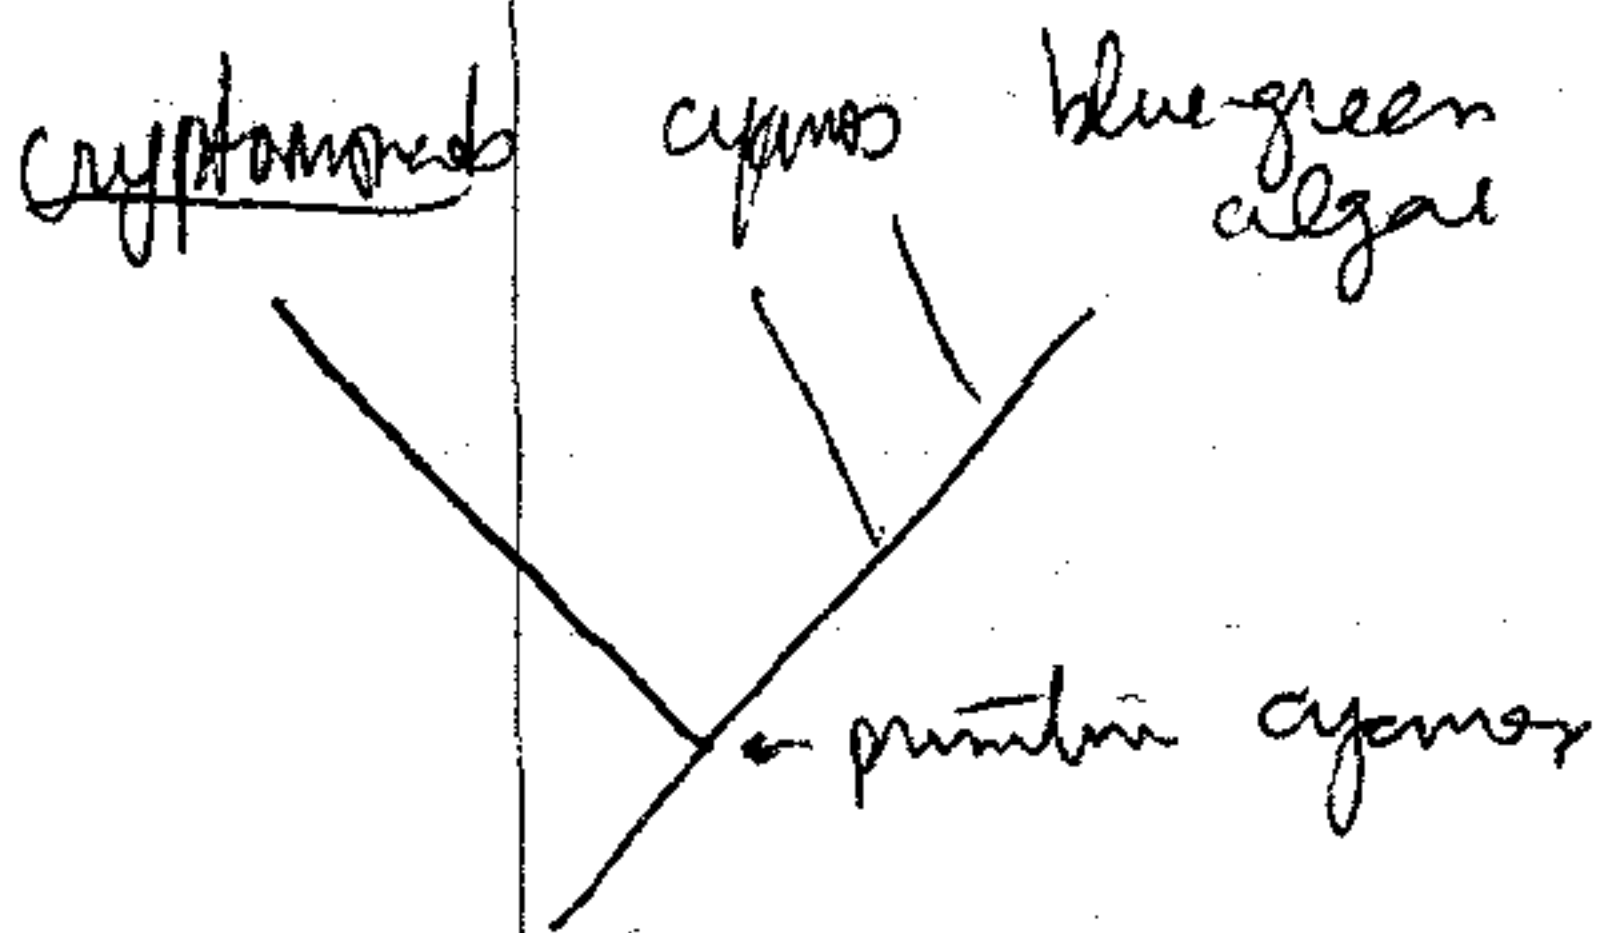 cryptomonads cyanos blue-green
algae
primitive cyanos